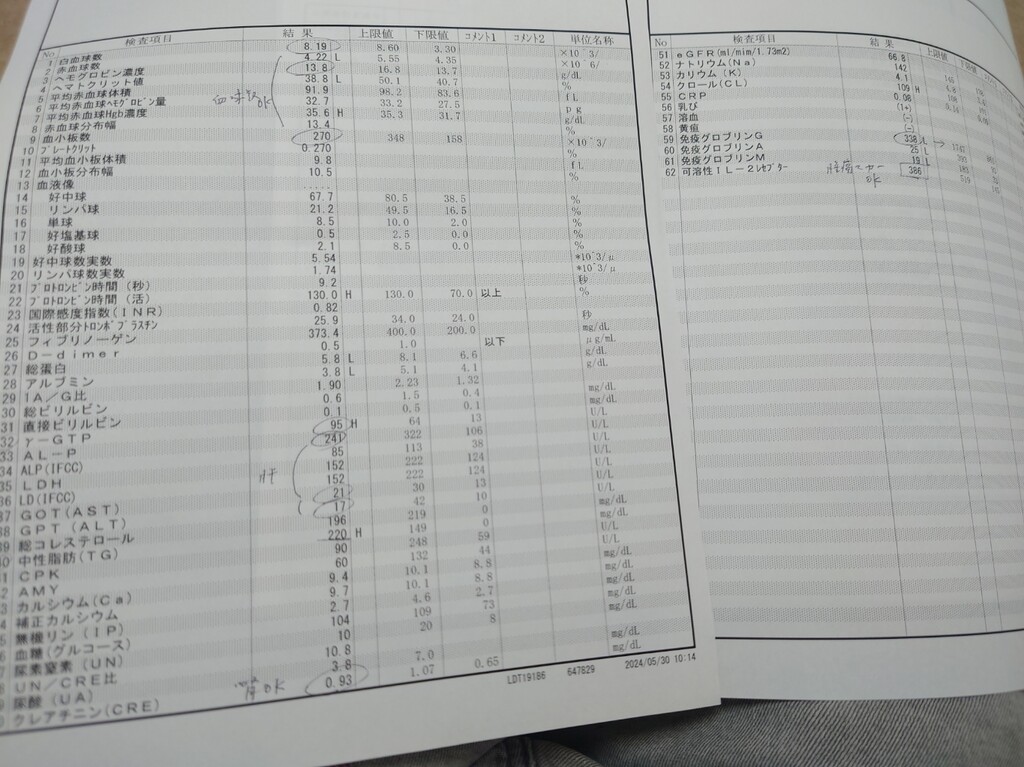 No 検査項目 結果 上限値 下限値 コメント1 コメント2 単位名称
1 白血球数 8.19 8.60 3.30 ×10^3/
2 赤血球数 4.22 L 5.55 4.35 ×10^6/
3 ヘモグロビン濃度 13.8 16.8 13.7 g/dL
4 ヘマトクリット値 38.8 L 50.1 40.7 %
5 平均赤血球体積 91.9 98.2 83.6 fL
6 平均赤血球ヘモグロビン量 32.7 33.2 27.5 pg
7 平均赤血球Hgb濃度 35.6 H 35.3 31.7 g/dL
8 赤血球分布幅 13.4 %
9 血小板数 270 348 158 ×10^3/
10 プレートクリット 0.270 %
11 平均血小板体積 9.8 fL
12 血小板分布幅 10.5 %
13 血液像 .....
14 好中球 67.7 80.5 38.5 %
15 リンパ球 21.2 49.5 16.5 %
16 単球 8.5 10.0 2.0 %
17 好塩基球 0.5 2.5 0.0 %
18 好酸球 2.1 8.5 0.0 %
19 好中球数実数 5.54 *10^3/μ
20 リンパ球数実数 1.74 *10^3/μ
21 プロトロンビン時間（秒） 9.2 秒
22 プロトロンビン時間（活） 130.0 H 130.0 70.0 以上 %
23 国際感度指数（INR） 0.82
24 活性部分トロンボプラスチン 25.9 34.0 24.0 秒
25 フィブリノーゲン 373.4 400.0 200.0 mg/dL
26 D-dimer 0.5 1.0 以下 μg/mL
27 総蛋白 5.8 L 8.1 6.6 g/dL
28 アルブミン 3.8 L 5.1 4.1 g/dL
29 1A/G比 1.90 2.23 1.32
30 総ビリルビン 0.6 1.5 0.4 mg/dL
31 直接ビリルビン 0.1 0.5 0.1 mg/dL
32 γ-GTP 95 H 64 13 U/L
33 AL-P 241 322 106 U/L
34 ALP(IFCC) 85 113 38 U/L
35 LDH 152 222 124 U/L
36 LD(IFCC) 152 222 124 U/L
37 GOT(AST) 21 30 13 U/L
38 GPT(ALT) 17 42 10 U/L
39 総コレステロール 196 219 0 mg/dL
40 中性脂肪(TG) 220 H 149 0 mg/dL
1 CPK 90 248 59 U/L
2 AMY 60 132 44 U/L
3 カルシウム(Ca) 9.4 10.1 8.8 mg/dL
4 補正カルシウム 9.7 10.1 8.8 mg/dL
5 無機リン（IP） 2.7 4.6 2.7 mg/dL
6 血糖(グルコース) 104 109 73 mg/dL
7 尿素窒素（UN） 10 20 8 mg/dL
8 UN/CRE比 10.8
9 尿酸（UA） 3.8 7.0 mg/dL
クレアチニン(CRE) 0.93 1.07 0.65 mg/dL
OK
肝
腎OK
LDT19186 647829 2024/05/30 10:14
No 検査項目 結果 上限値 下限値
51 eGFR(ml/mim/1.73m2) 66.8
52 ナトリウム(Na) 142
53 カリウム(K) 4.1
54 クロール(CL) 109 H
55 CRP 0.08
56 乳び (1+)
57 溶血 (-)
58 黄疸 (-)
59 免疫グロブリンG 338 L →
60 免疫グロブリンA 25 L
61 免疫グロブリンM 19 L
62 可溶性IL-2レセプター 386
腫瘍マーカー
OK